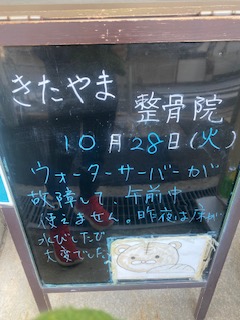 きたやま
整骨院
10月28日(火)
ウォーターサーバーが
故障して、午前中
使えません。昨夜は床が
水びしたしで
大変でした。